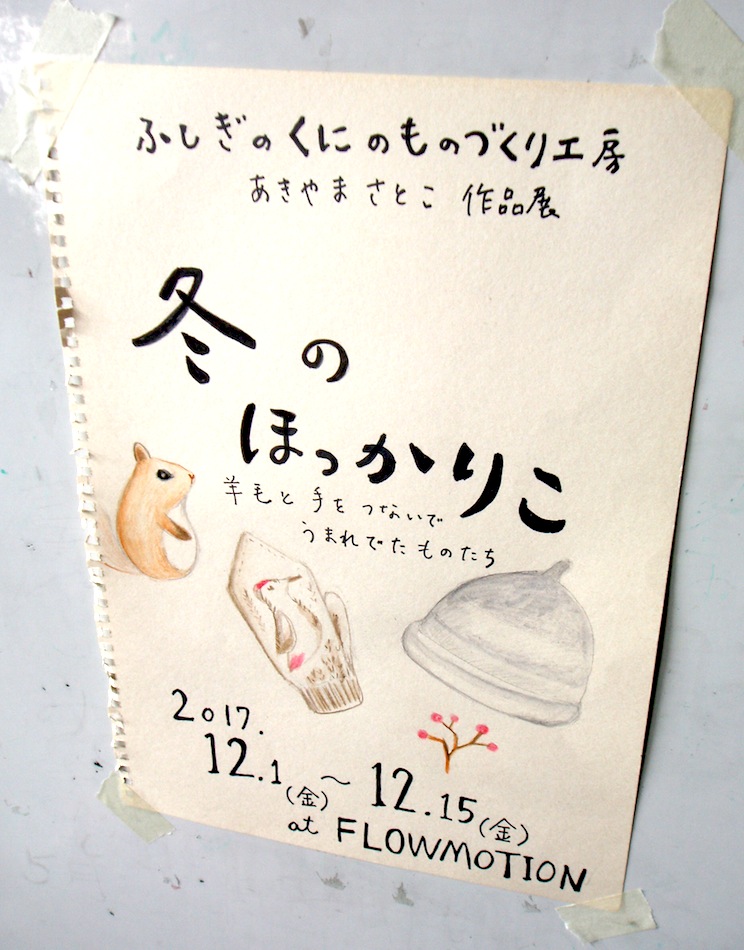 ふしぎのくにのものづくり工房
あきやまさとこ 作品展
冬の
ほっかりこ
羊毛と手をつないで
うまれでたものたち
2017.
12.1(金)〜12.15(金)
at FLOWMOTION